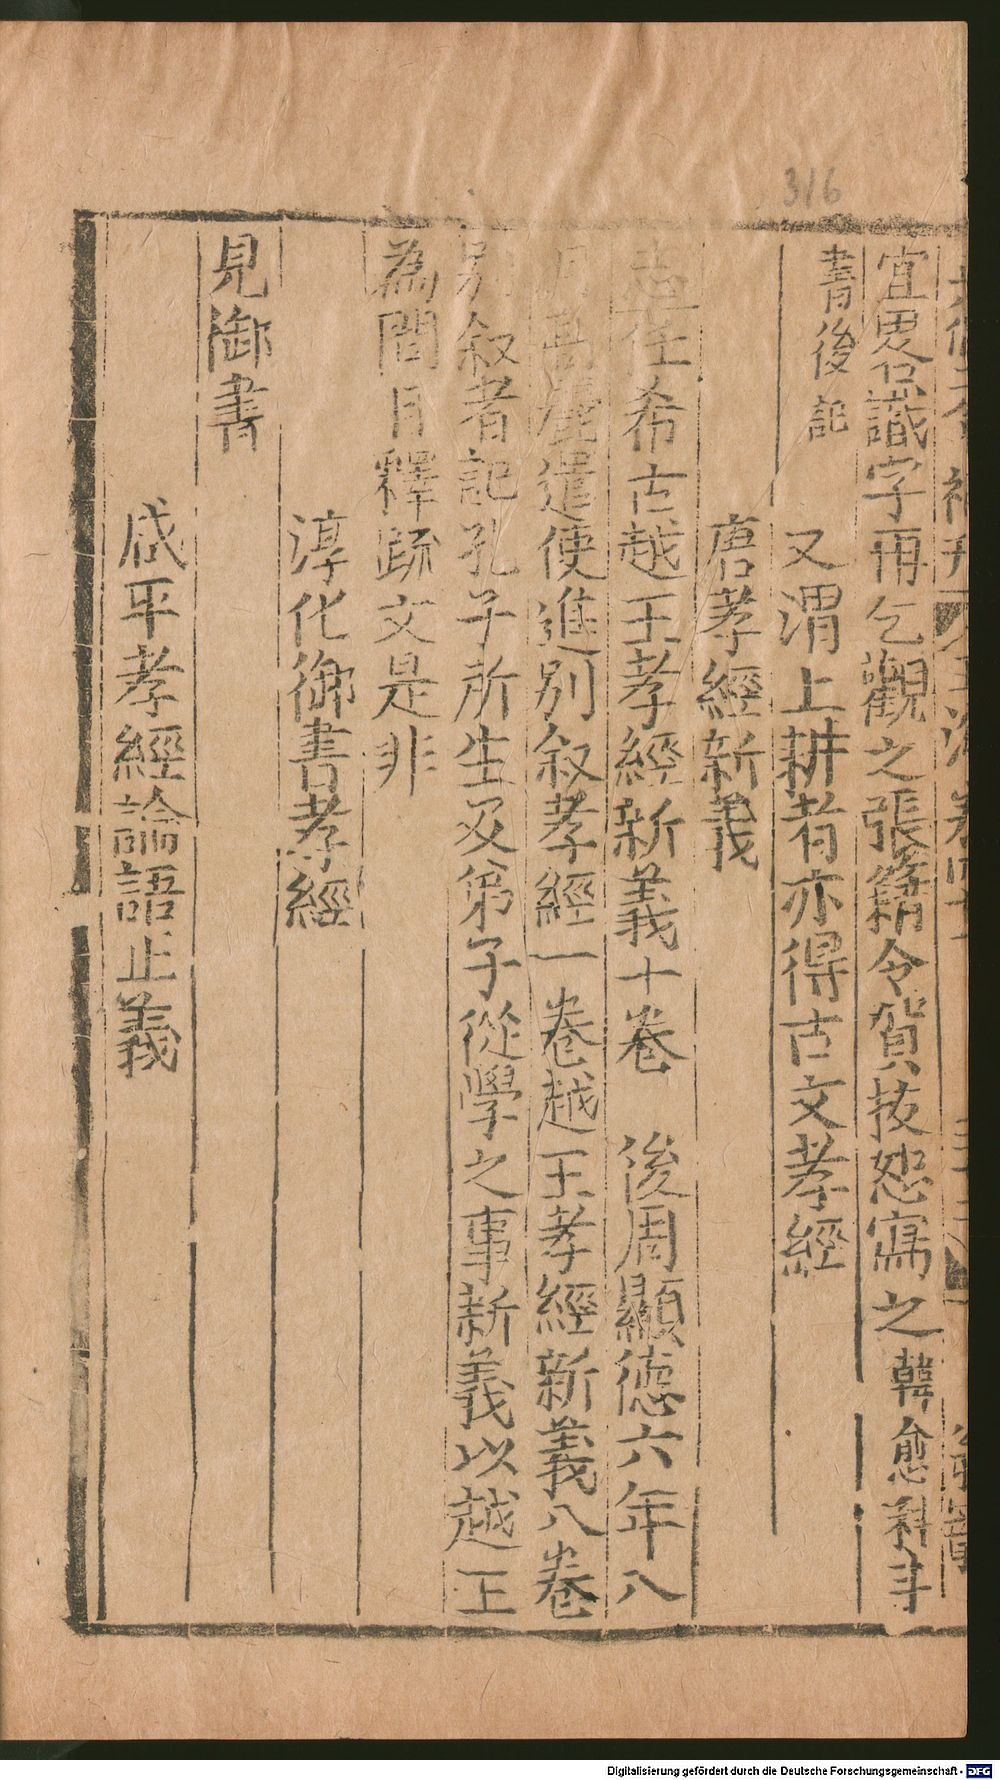 316
宜畧識字再乞觀之張籍令賀拔恕寫之韓愈科斗
書後記
又渭上耕者亦得古文孝經
唐孝經新義
志任希古越王孝經新義十卷 後周顯德六年八
月高麗遣使進別叙孝經一卷越王孝經新義八卷
別叙者記孔子所生及弟子從學之事新義以越王
為問目釋疏文是非
淳化御書孝經
見御書
咸平孝經論語正義
Digitalisierung gefördert durch die Deutsche Forschungsgemeinschaft - DFG